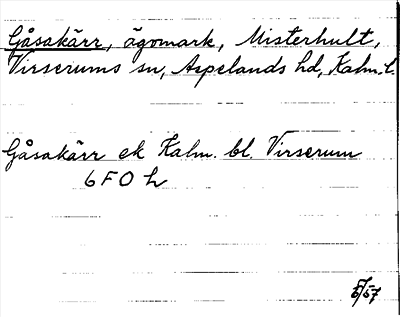 Gåsakärr, ägomark, Misterhult,
Virserums sn, Aspelands hd, Kalm. l.
Gåsakärr ek Kalm. bl. Virserum
6 F 0 h
5/57